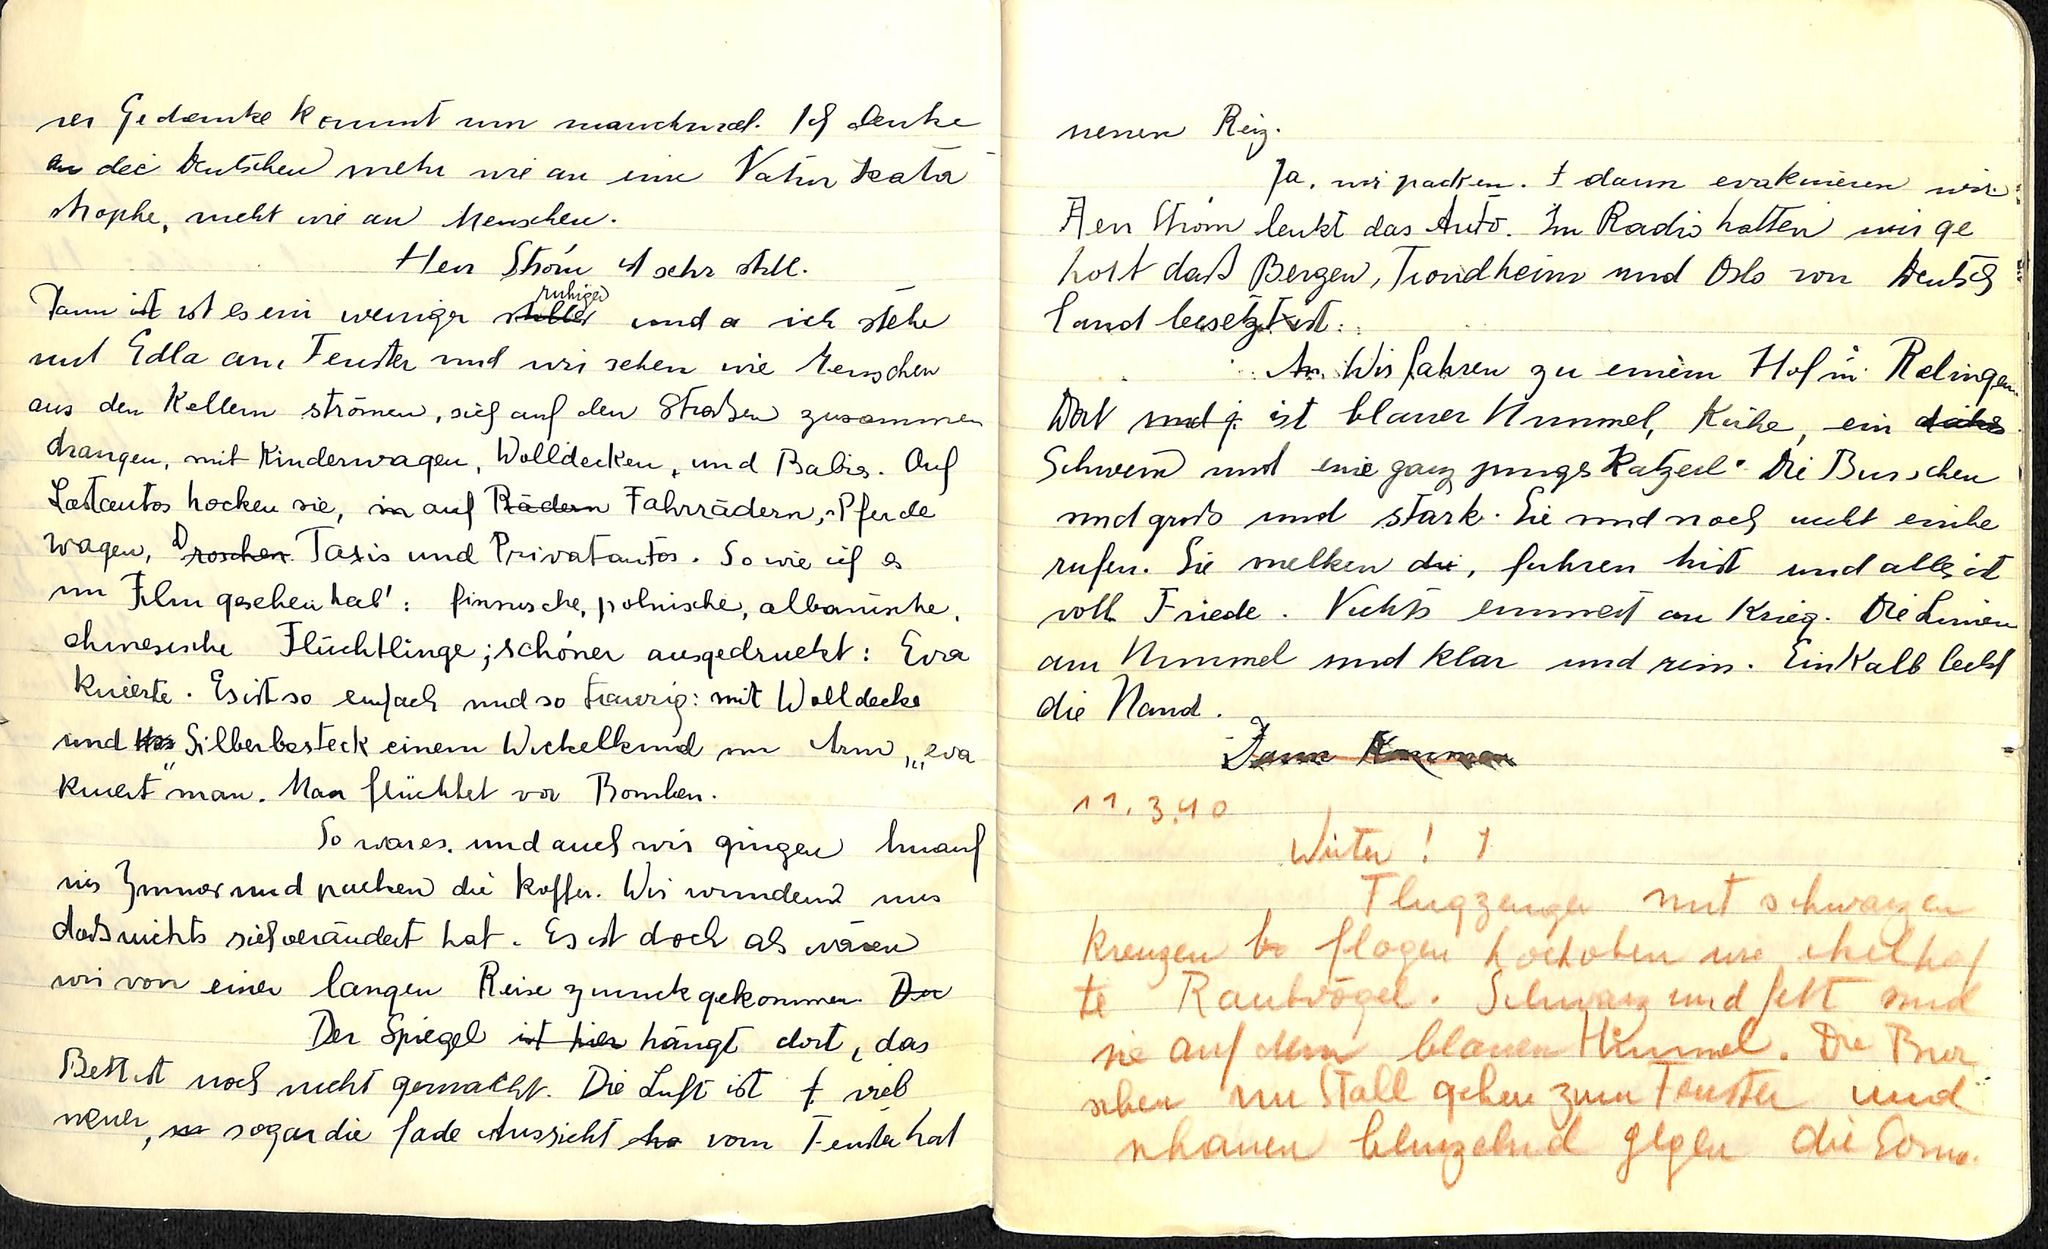 ser Gedanke kommt mir manchmal. Ich denke
an die Deutschen mehr wie an eine Natur kata
strophe, nicht wie an Menschen.
Herr Ström ist sehr still.
Dann ist ist es ein weniger stiller ruhiger und a ich stehe
mit Edla am Fenster und wir sehen wie Menschen
aus den Kellern strömen, sich auf den Straßen zusammen
drangen, mit Kinderwagen, Wolldecken, und Babis. Auf
Lastautos hocken sie, in auf Rädern Fahrrädern, Pferde
wagen, Droschen Taxis und Privatautos. So wie ich es
im Film gesehen hab': finnische, polnische, albanische,
chinesische Flüchtlinge; schöner ausgedruckt: Eva
kuierte. Es ist so einfach und so traurig: mit Wolldecke
und Silberbesteck einem Wickelkind im Arm „eva
kuiert" man. Man flüchtet vor Bomben.
So war es. und auch wir gingen hinauf
ins Zimmer und packen die Koffer. Wir wundern uns
daß nichts sich verändert hat. Es ist doch als wären
wir von einer langen Reise zurück gekommen. Der
Der Spiegel ist hier hängt dort, das
Bett ist noch nicht gemacht. Die Luft ist f viel
neuer, sogar die fade Aussicht ha vom Fenster hat
neuen Reiz.
Ja, wir packen. f dann evakuieren wir.
Herr Ström lenkt das Auto. Im Radio hatten wir ge
hört daß Bergen, Trondheim und Oslo von Deutsch
land besetzt ist.
An Wir fahren zu einem Hof in Rälingen.
Dort und j ist blauer Himmel, Kühe, ein dickes
Schwein und eine ganz junges Katzerl. Die Burschen
sind groß und stark. Sie sind noch nicht einbe
rufen. Sie melken die, fuhren Mist und alles ist
voll Friede. Nichts erinnert an Krieg. Die Linien
am Himmel sind klar und rein. Ein Kalb leckt
die Hand.
Dann
11.3.40
Weiter!
Flugzeuge mit schwarzen
Kreuzen flogen hochoben wie ekelhaf
te Raubvögel. Schwarz und fett sind
sie auf dem blauen Himmel. Die Bur
schen im Stall gehen zum Fenster und
schauen blinzelnd gegen die Sonne.